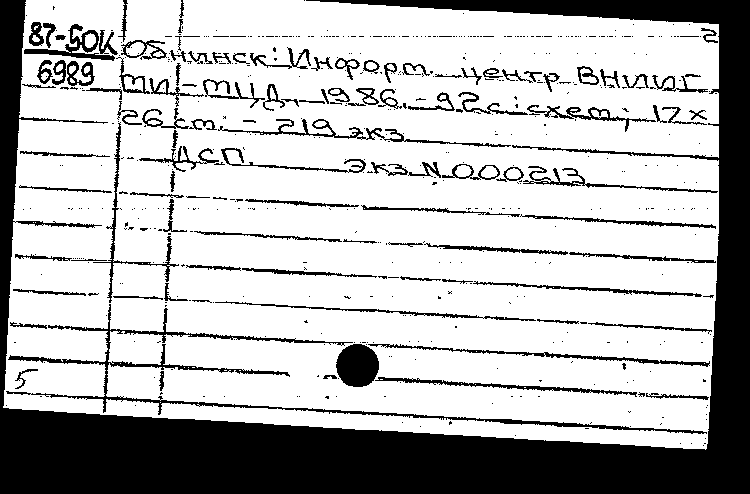 2
87-50К
6989
Обнинск: Информ. центр ВНИИГ
МИ-МЦД, 1986.-92с.:схем; 17х
26 см. - 219 экз.
ДСП. Экз. N 000213
5